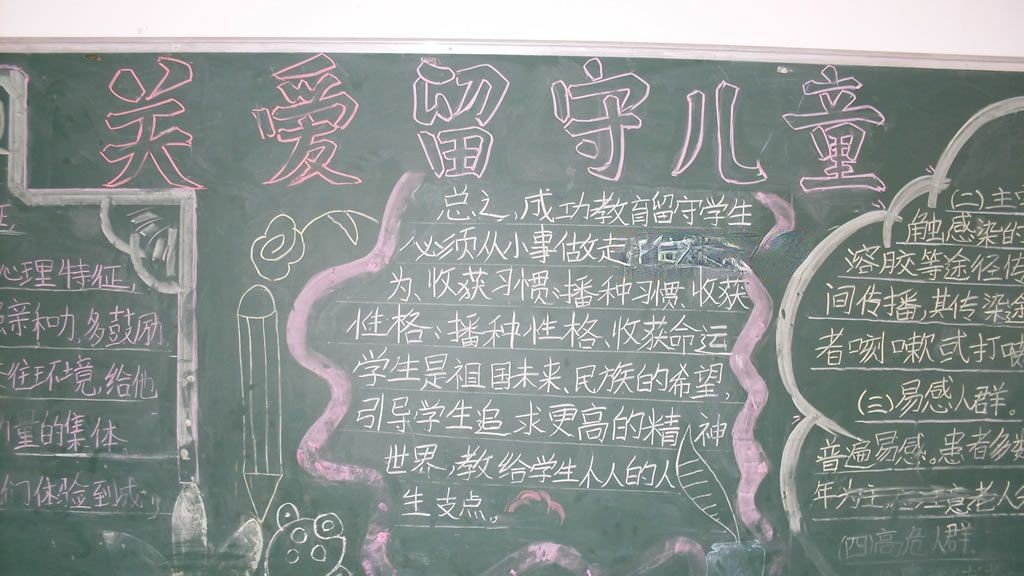 关爱留守儿童
心理特征,
亲和力,多鼓励
住环境,给他
量的集体
们体验到成
总之,成功教育留守学生
必须从小事做走
为、收获习惯;播种习惯、收获
性格;播种性格、收获命运
学生是祖国未来、民族的希望,
引导学生追求更高的精神
世界,教给学生人人的人
生支点。
(二)主
触感染的
溶胶等途径传
间传播,其传染
者咳嗽或打喷
(三)易感人群。
普遍易感。患者多数
年为主
(四)高危人群.